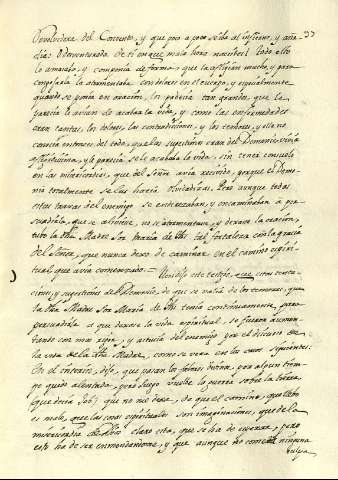 37
del Convento, y que poco a poco se iba al infierno, y aña-
dia: Desventurada de ti en que mala hora naciste! todo esto
lo amasaba, y componia de forma, que la afligian mucho, y para
congojarla la atormentaba con dolores en el cuerpo, y especialmente
quando se ponia en oracion, los padecia tan grandes, que la
parecia le avian de acabar la vida, y como las enfermedades
eran tantas, los dolores, las contradiciones, y los temores, y ella no
conocia entonces del todo, que las sugestiones eran del Demonio
y la parecia se le acababa la vida, sin tener consuelo
en las misericordias, que del Señor avia recivido, porque el Demo-
nio totalmente se las hacia Pero aunque todas
estas tareas del enemigo se enderezaban, y encaminaban a per-
suadirla, que se aliviase, no se atormentase, y dexase la oracion,
tubo la Madre Sor Maria de tal fortaleza con la gracia
del Señor, que nunca dexo de caminar en el camino espiri-
tual que avia comenzado. = Y dijo este testigo, que como tenta-
ciones, y sugestiones del Demonio, de que se valia de los temores, que
la Madre Sor Maria de tenia continuamente, para
persuadirla a que dexase la vida espiritual, se fueron aumen-
tando con mas rigor, y astucia del enemigo por el discurso de
la vida de la Madre, como se vera en los casos siguientes:
En el interin, dijo, que pasan los dolores divinos, por algun tiem-
po quedo alentada, pero luego vuelve la guerra sobre la tierra
(que decia Job) que no me dexa, de que el camino, que llebo
es malo, que las cosas espirituales son imaginaciones, que de la
misericordia de Dios claro esta, que se ha de esperar, pero
esto ha de ser enmendandome, y que aunque no cometa ninguna
culpa